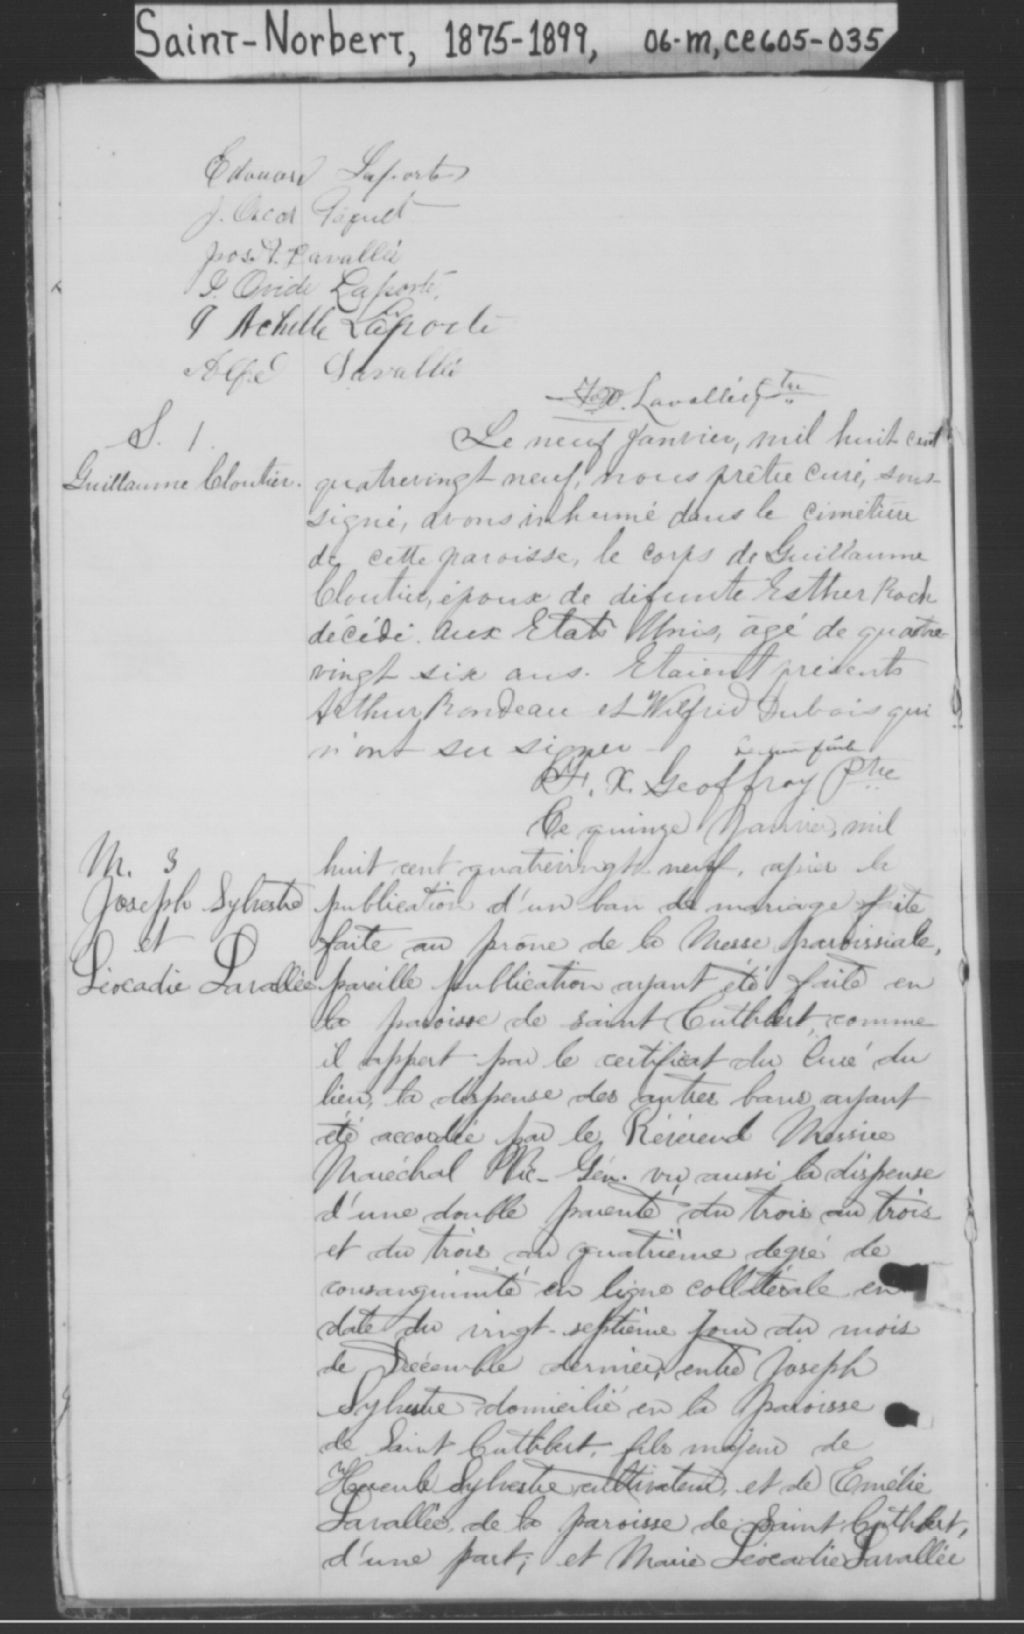 Saint-Norbert, 1875-1899, 06-M, CE605-035
Edouard Laporte
J. Oscar Paquet
Jos. A. Lavallée
J. Ovide Laporte
J Achille Laporte
Alf.d Lavallée
Lavallée Ptre
S. 1.
Guillaume Cloutier.
Le neuf Janvier, mil huit cent
quatrevingt neuf, nous prêtre curé, sous-
signé, avons inhumé dans le cimetière
de cette paroisse, le corps de Guillaume
Cloutier, époux de défunte Esther Roch
décédé aux Etats Unis, âgé de quatre-
vingt six ans. Etaient présents
Arthur Rondeau et Wilfrid Dubois qui
n'ont su signer
F. X. Geoffroy Ptre
Ce quinze Janvier, mil
M. 3
Joseph Sylvestre
et
Léocadie Lavallée
huit cent quatrevingt neuf, après la
publication d'un ban de mariage faite
faite au prône de la Messe paroissiale,
pareille publication ayant été faite en
la paroisse de saint Cuthbert, comme
il appert par le certificat du Curé du
lieu, la dispense des autres bans ayant
été accordée par le Révérend Messire
Maréchal Vic-Gén. vu aussi la dispense
d'une double parenté du trois au trois
et du trois au quatrième degré de
consanguinité en ligne collatérale en
date du vingt-septième jour du mois
de Décembre dernier, entre Joseph
Sylvestre domicilié en la paroisse
de Saint Cuthbert, fils majeur de
Sylvestre cultivateur, et de Emélie
Lavallée, de la paroisse de Saint Cuthbert,
d'une part; et Marie Léocadie Lavallée